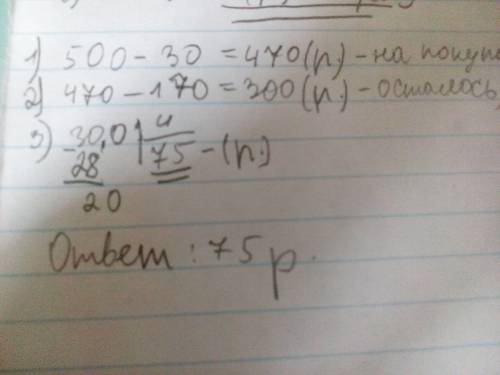 1) 500 - 30 = 470 (р) - на покупк
2) 470 - 170 = 300 (р.) - осталось
3) 300 | 4
28 | 75 - (р.)
20
Ответ: 75 р.